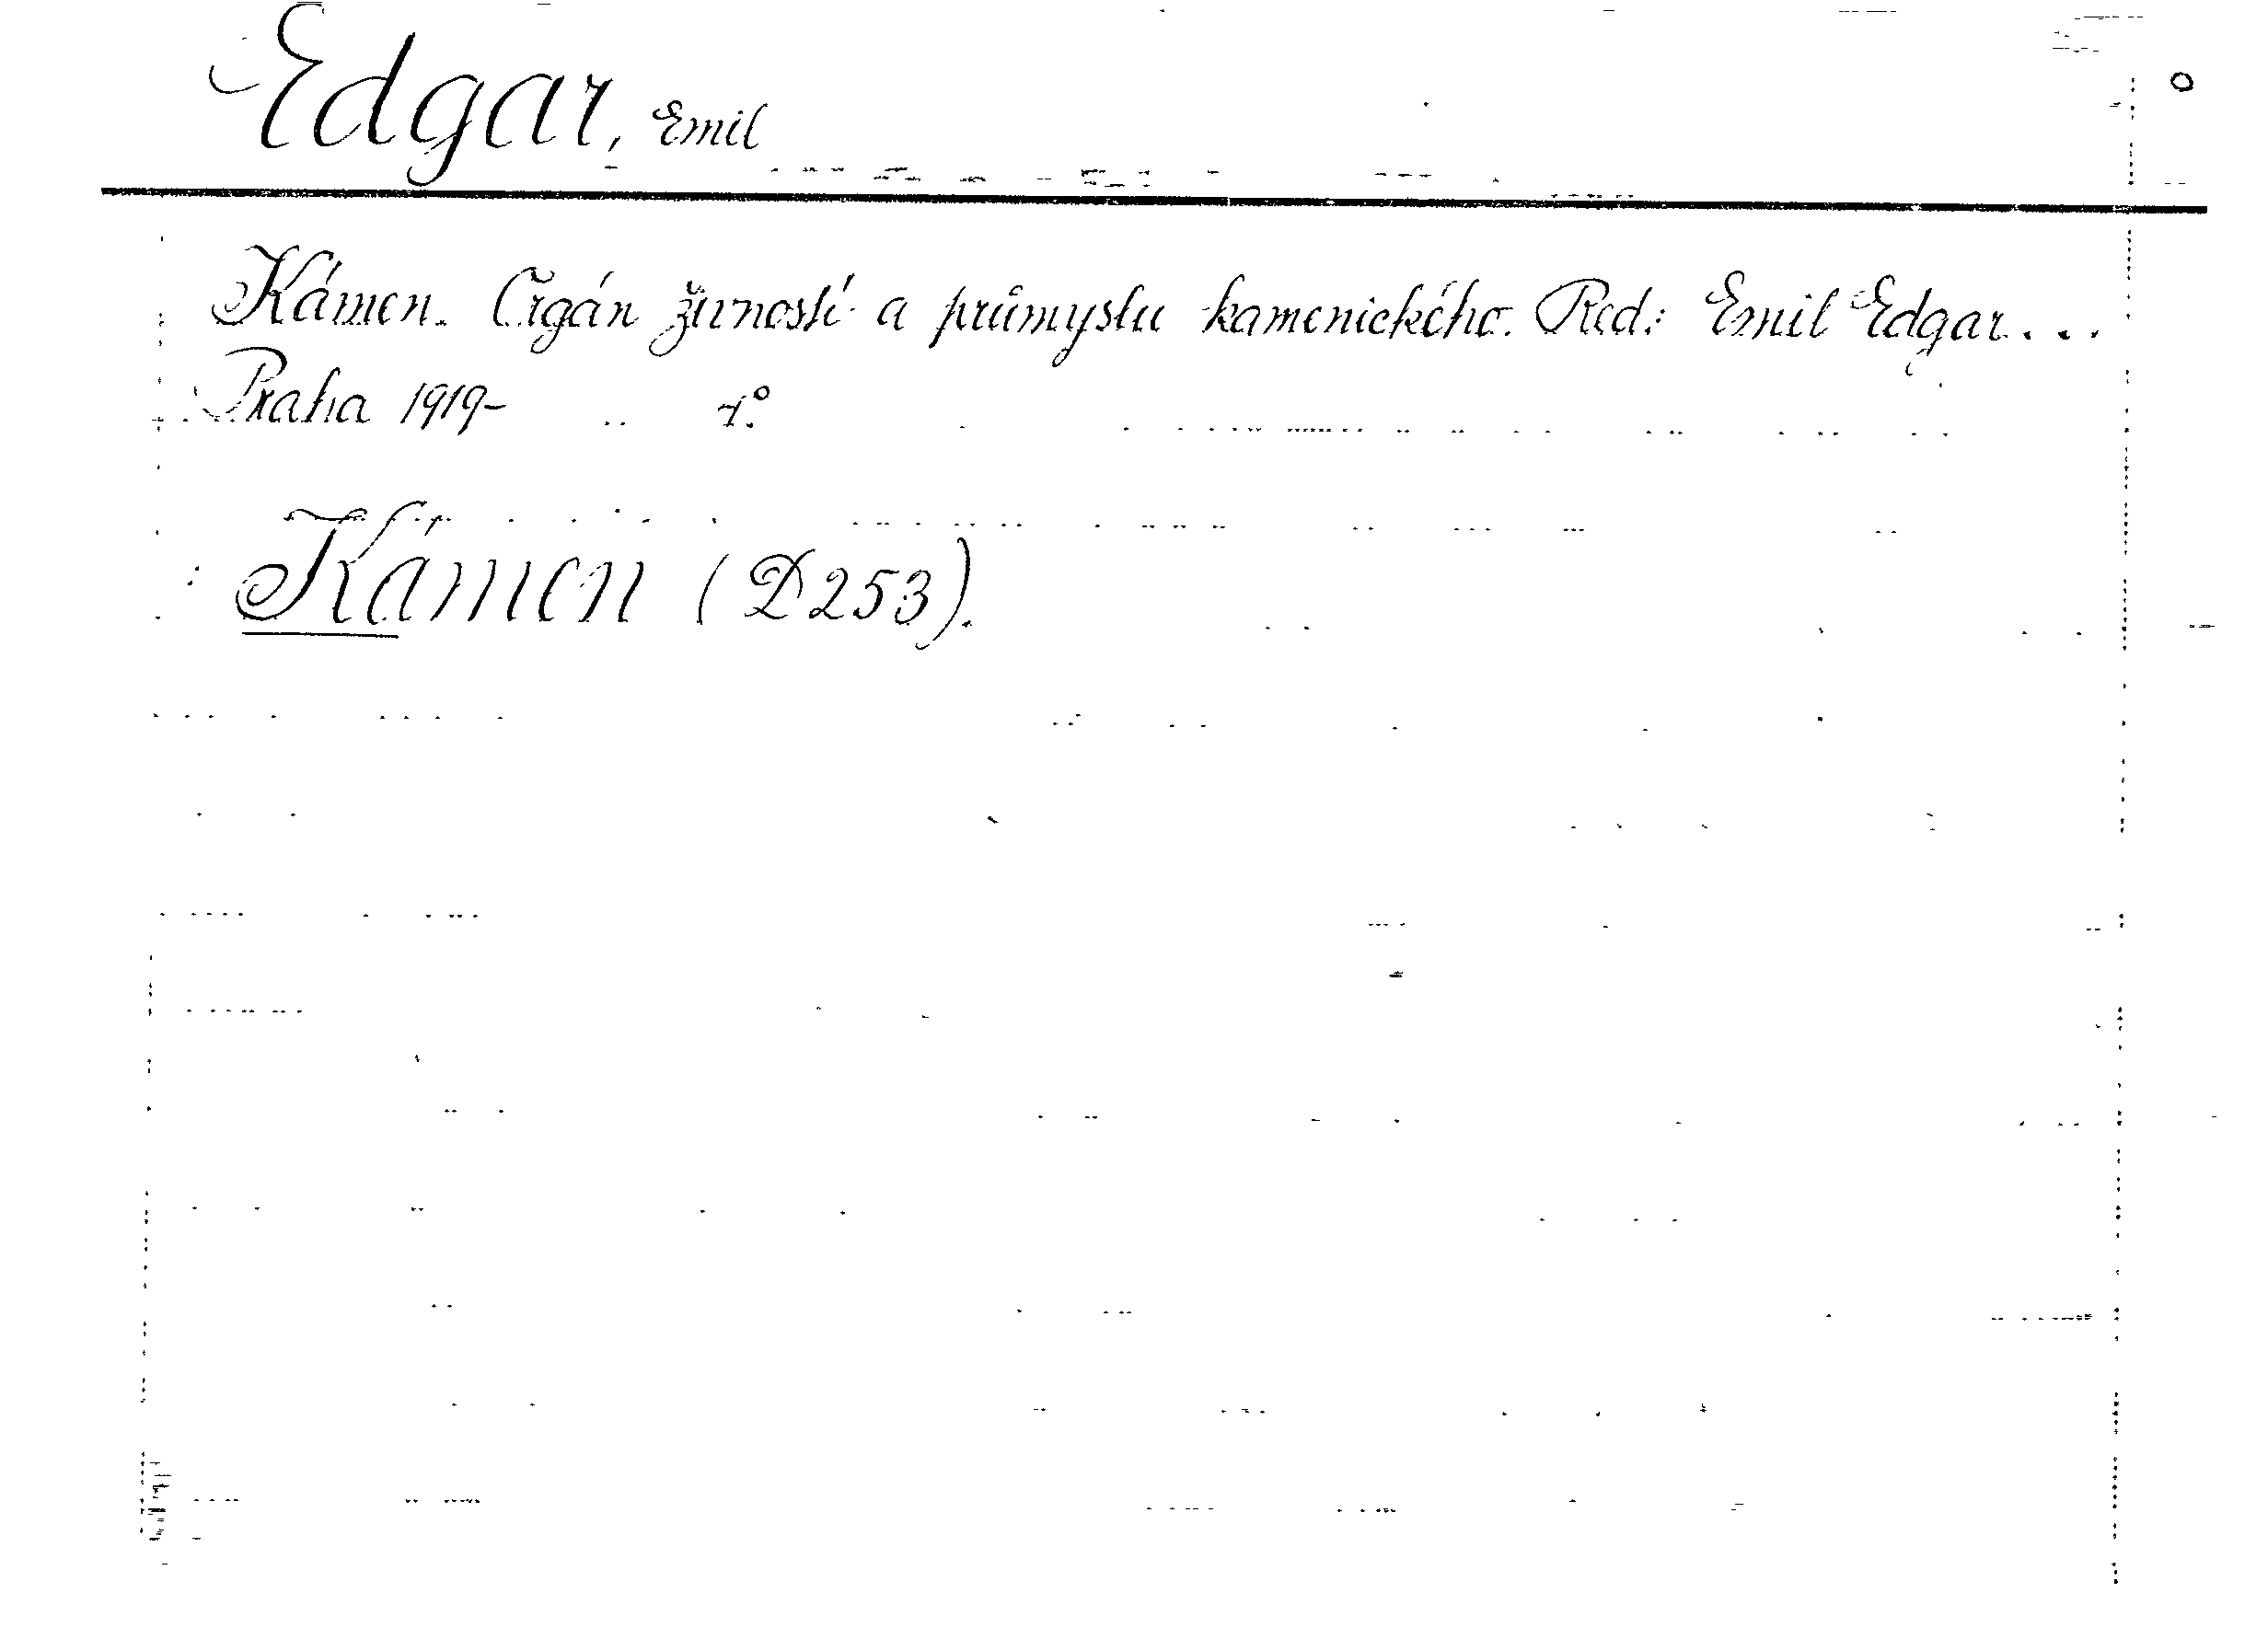 Edgar, Emil
Kámen. Orgán živností a průmyslu kamenického. Red.: Emil Edgar...
Praha 1919- 4°.
Kámen (D 253).